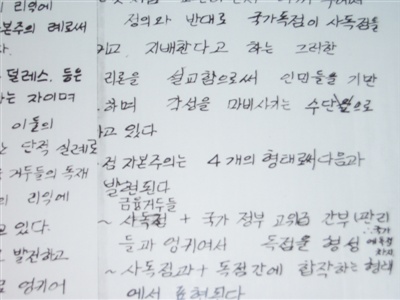 의 리익에
본주의 례로써
덜레스. 등은
는 자이며
이들의
단적 실례로
거두들의 독재
의 리익에
고 있다.
발전하고
로 엉귀어
정의와 반대로 국가독점이 사독점을
지배한다고 하는 그러한
리론을 설교함으로써 인민들을 기반
하며 각성을 마비시키는 수단으로
고 있다
점 자본주의는 4개의 형태로써 다음과
발현된다
금융거두들
~ 사독점 + 국가 정부 고위급 간부나 관리
들과 엉귀어서 독점을 형성
국가
~ 사독점과 + 독점간에 합작하는 형태
에서 표현된다